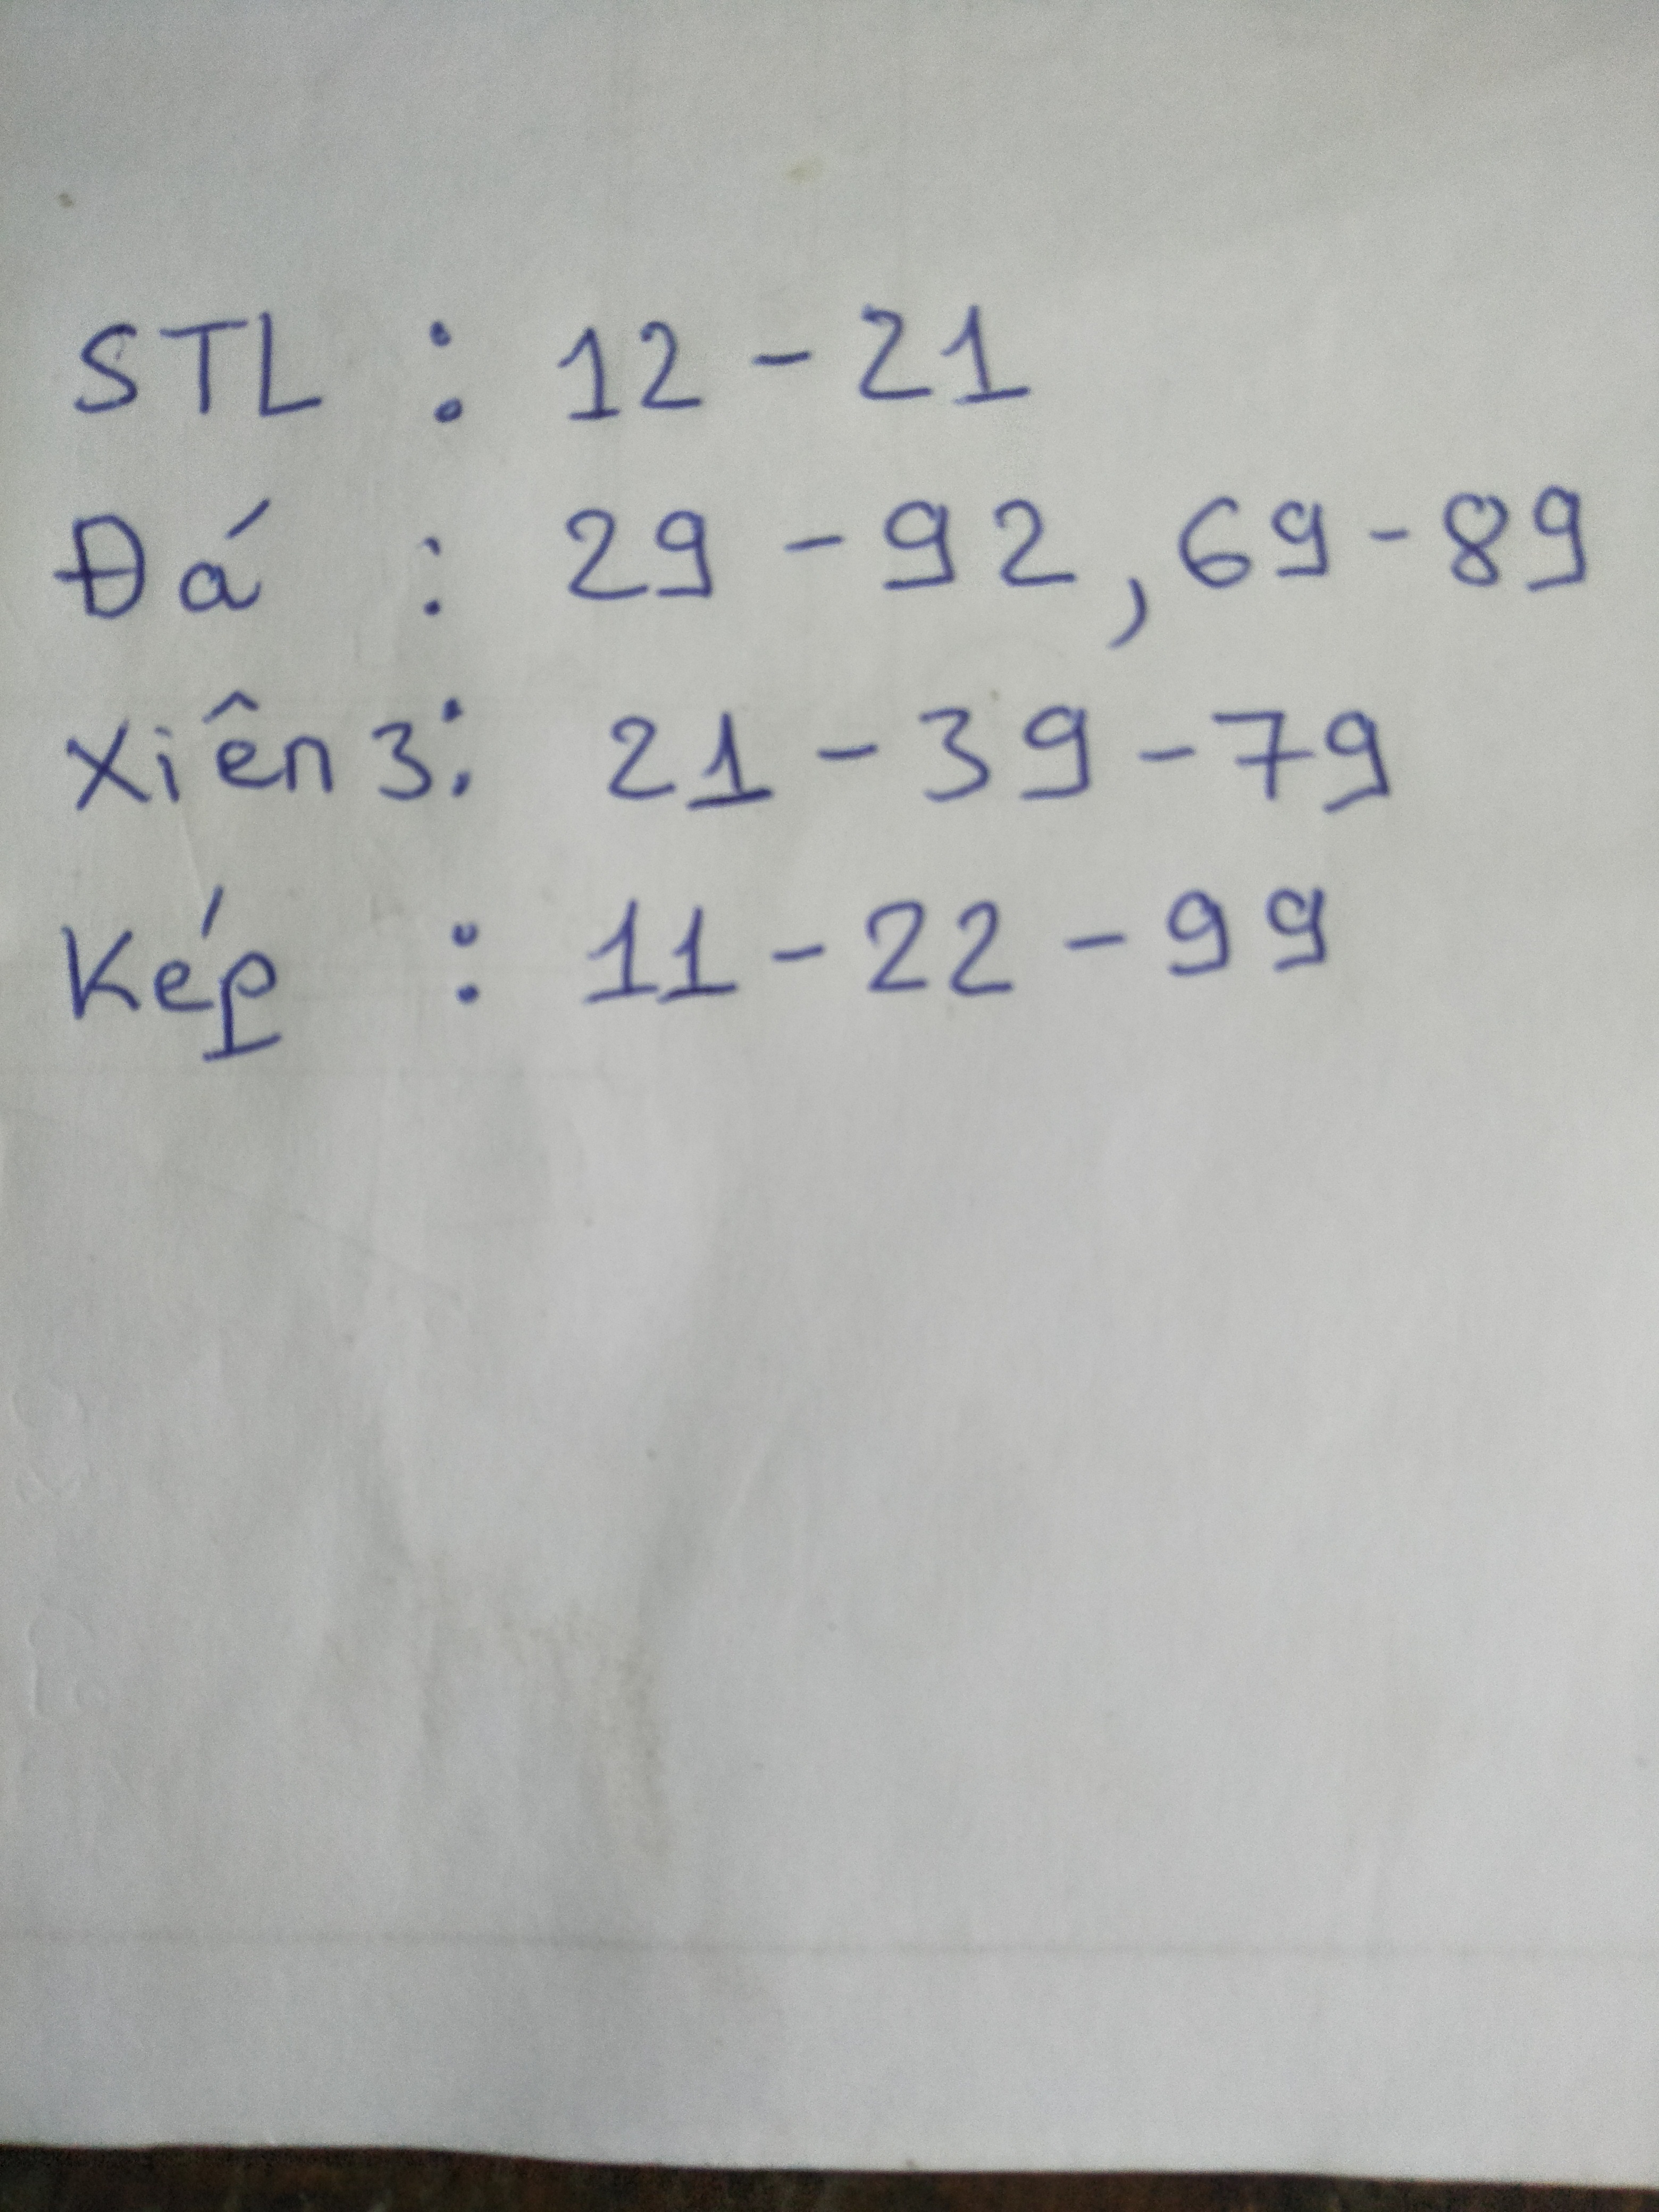 STL : 12 - 21
Đá : 29 - 92, 69 - 89
Xiên 3: 21 - 39 - 79
Kép : 11 - 22 - 99